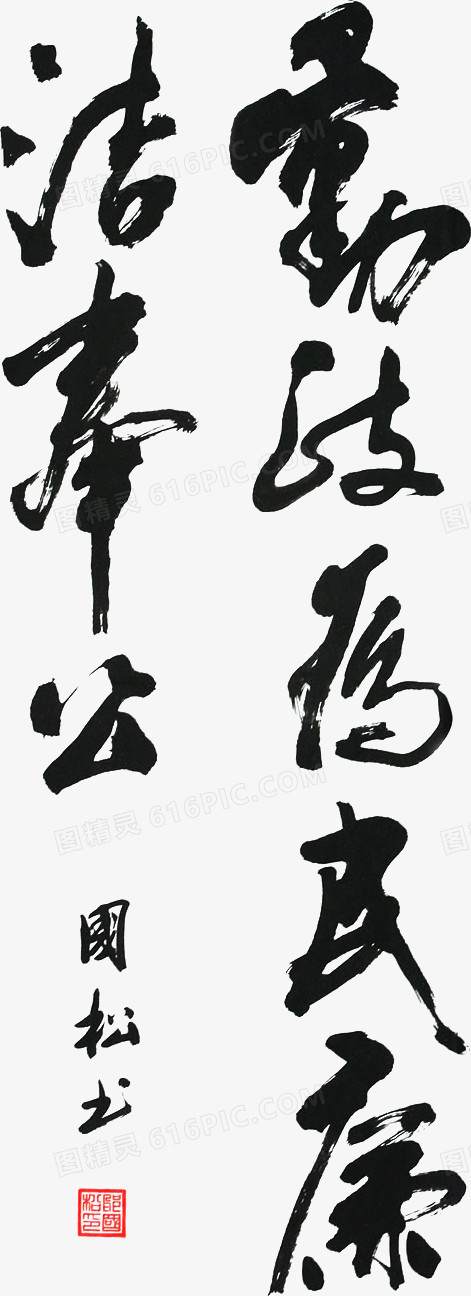 勤政為民廉
洁奉公
國松书
图精灵 616PIC.COM